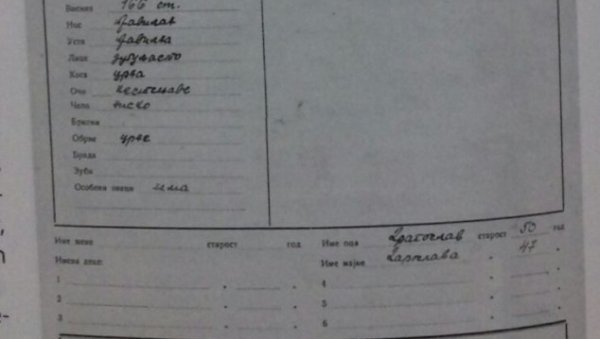 Висина 166 cm.
Нос правилан
Уста правилна
Лице дугуљасто
Коса црна
Очи
Чело ниско
Бркови
Обрве црне
Брада
Зуби
Особени знаци има
Име жене старост год
Име оца Драгослав старост 50 год
Имена деце:
Име мајке „ 47 „
1 „ „
4 „ „
2 „ „
5 „ „
3 „ „
6 „ „